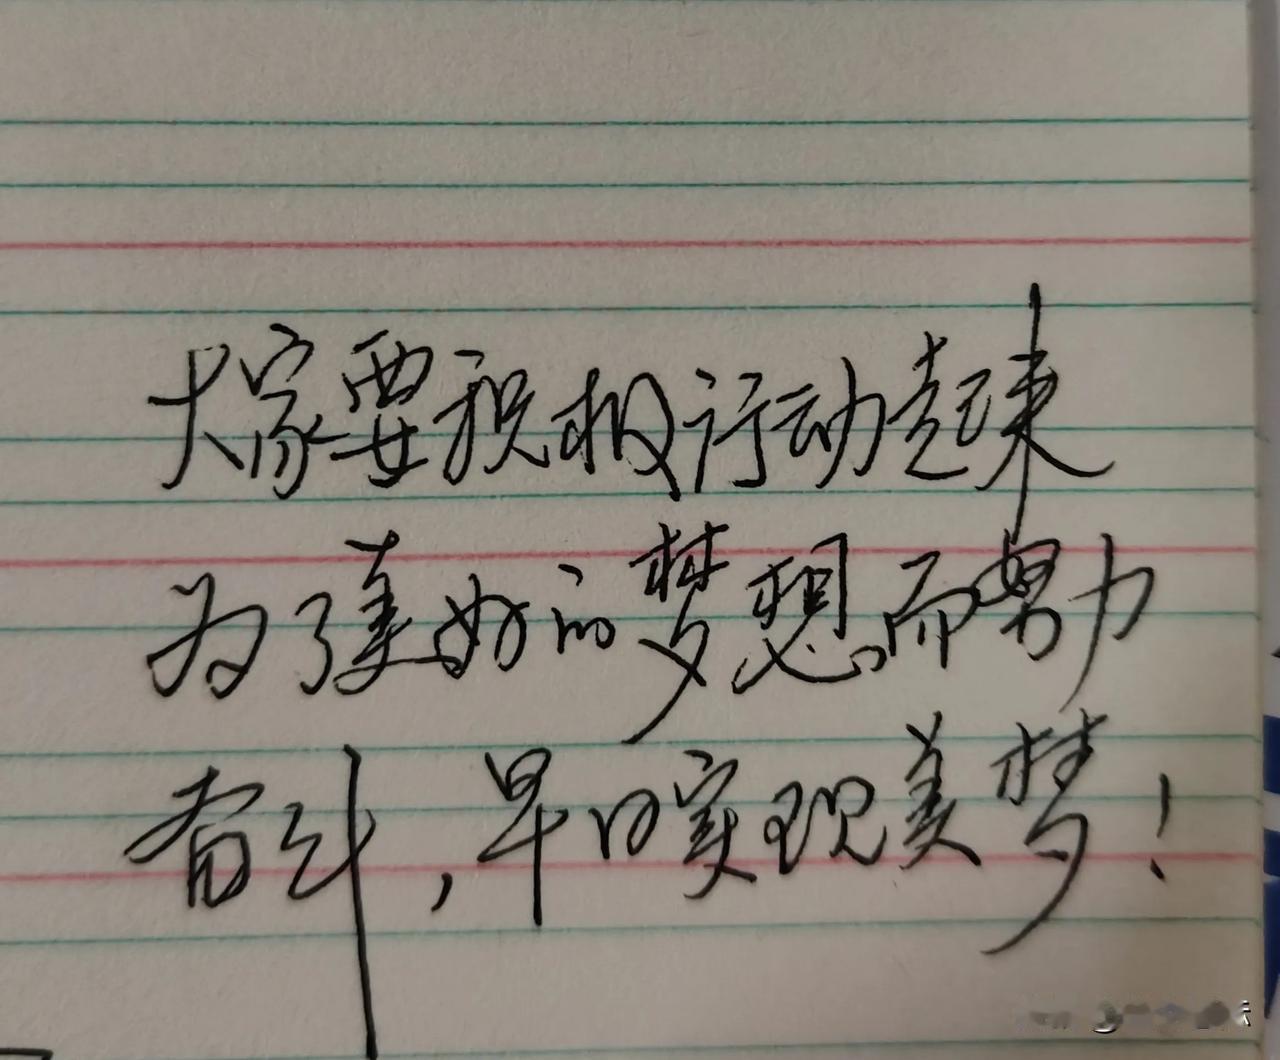 大家要积极行动起来
为了美好的梦想而努力
奋斗，早日实现美梦！